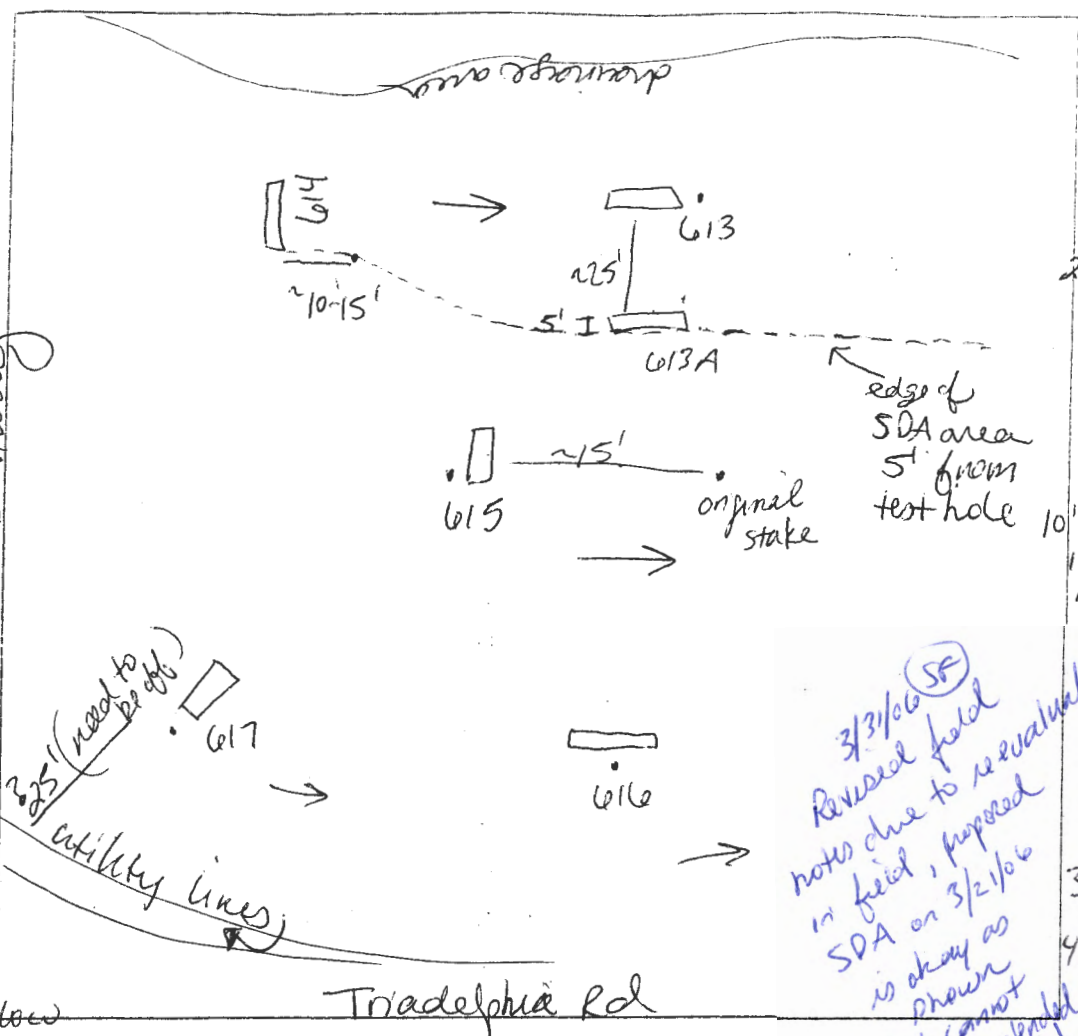 drainage area
614
613
~25'
~10-15'
5'
613A
edge of
SDA area
5' from
test hole
~15'
615
original
stake
10'
617
616
25' (need to
be off)
utility lines
Triadelphia Rd
3/31/06 SF
Revised field
notes due to reevaluat
in field, proposed
SDA on 3/21/06
is okay as
shown
cannot